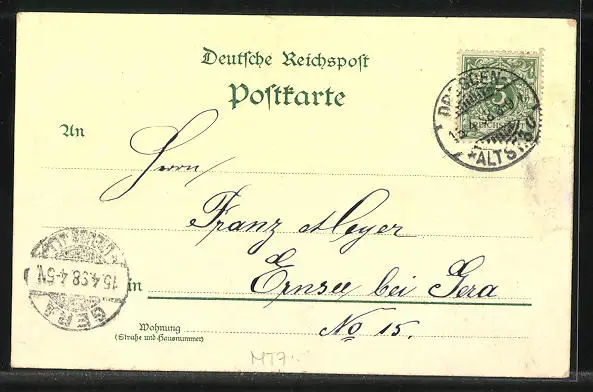 Deutsche Reichspost
Postkarte
DRESDEN
ALTST.
An
Herrn
Franz Meyer
15.4.98 4-5 V.
GERA
in Ernsee bei Gera
Wohnung No 15.
(Straße und Hausnummer)
M77.